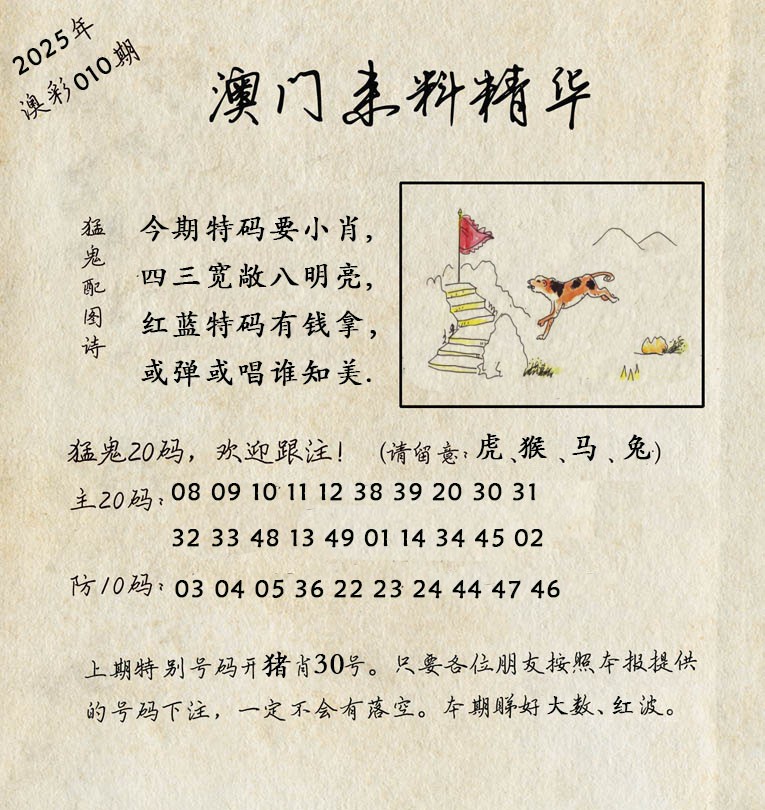 2025年
澳彩010期
澳门来料精华
猛鬼配图诗
今期特码要小肖,
四三宽敞八明亮,
红蓝特码有钱拿,
或弹或唱谁知美.
猛鬼20码，欢迎跟注！ (请留意：虎、猴、马、兔)
主20码：08 09 10 11 12 38 39 20 30 31
32 33 48 13 49 01 14 34 45 02
防10码：03 04 05 36 22 23 24 44 47 46
上期特别号码开猪肖30号。只要各位朋友按照本报提供
的号码下注，一定不会有落空。本期睇好大数、红波。